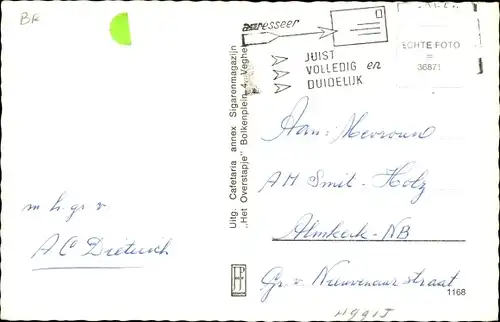 BK
adresseer
JUIST
VOLLEDIG en
DUIDELIJK
ECHTE FOTO
=
36871
Uitg. Cafetaria annex Sigarenmagazijn
„Het Overstapje" Bolkenplein 4, Veghel
Aan: Mevrouw
A H Smit-Holz
Almkerk-NB
Gr. v. Nieuvenaar straat
m h. gr. v
A C Dieterich
1168